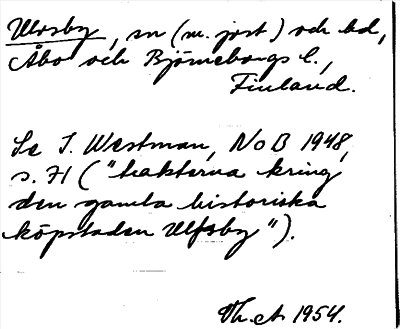 Ulvsby, sn (m. jrst) och hd,
Åbo och Björneborgs l.,
Finland.
Se I. Westman, NoB 1948,
s. 71 ("trakterna kring
den gamla historiska
köpstaden Ulfsby").
Th. A 1954.